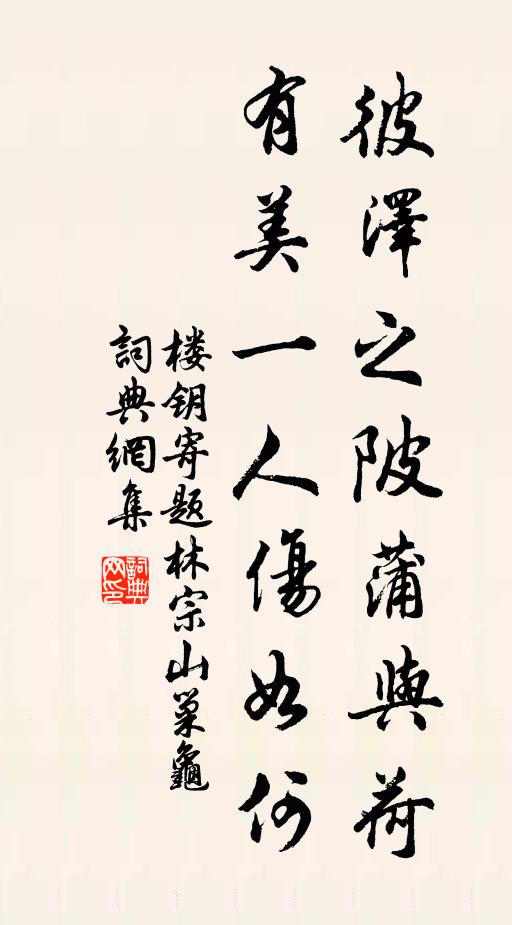 彼澤之陂蒲與荷
有美一人傷如何
楼钥寄题林宗山巢龜
詞典網集
詞典
网印